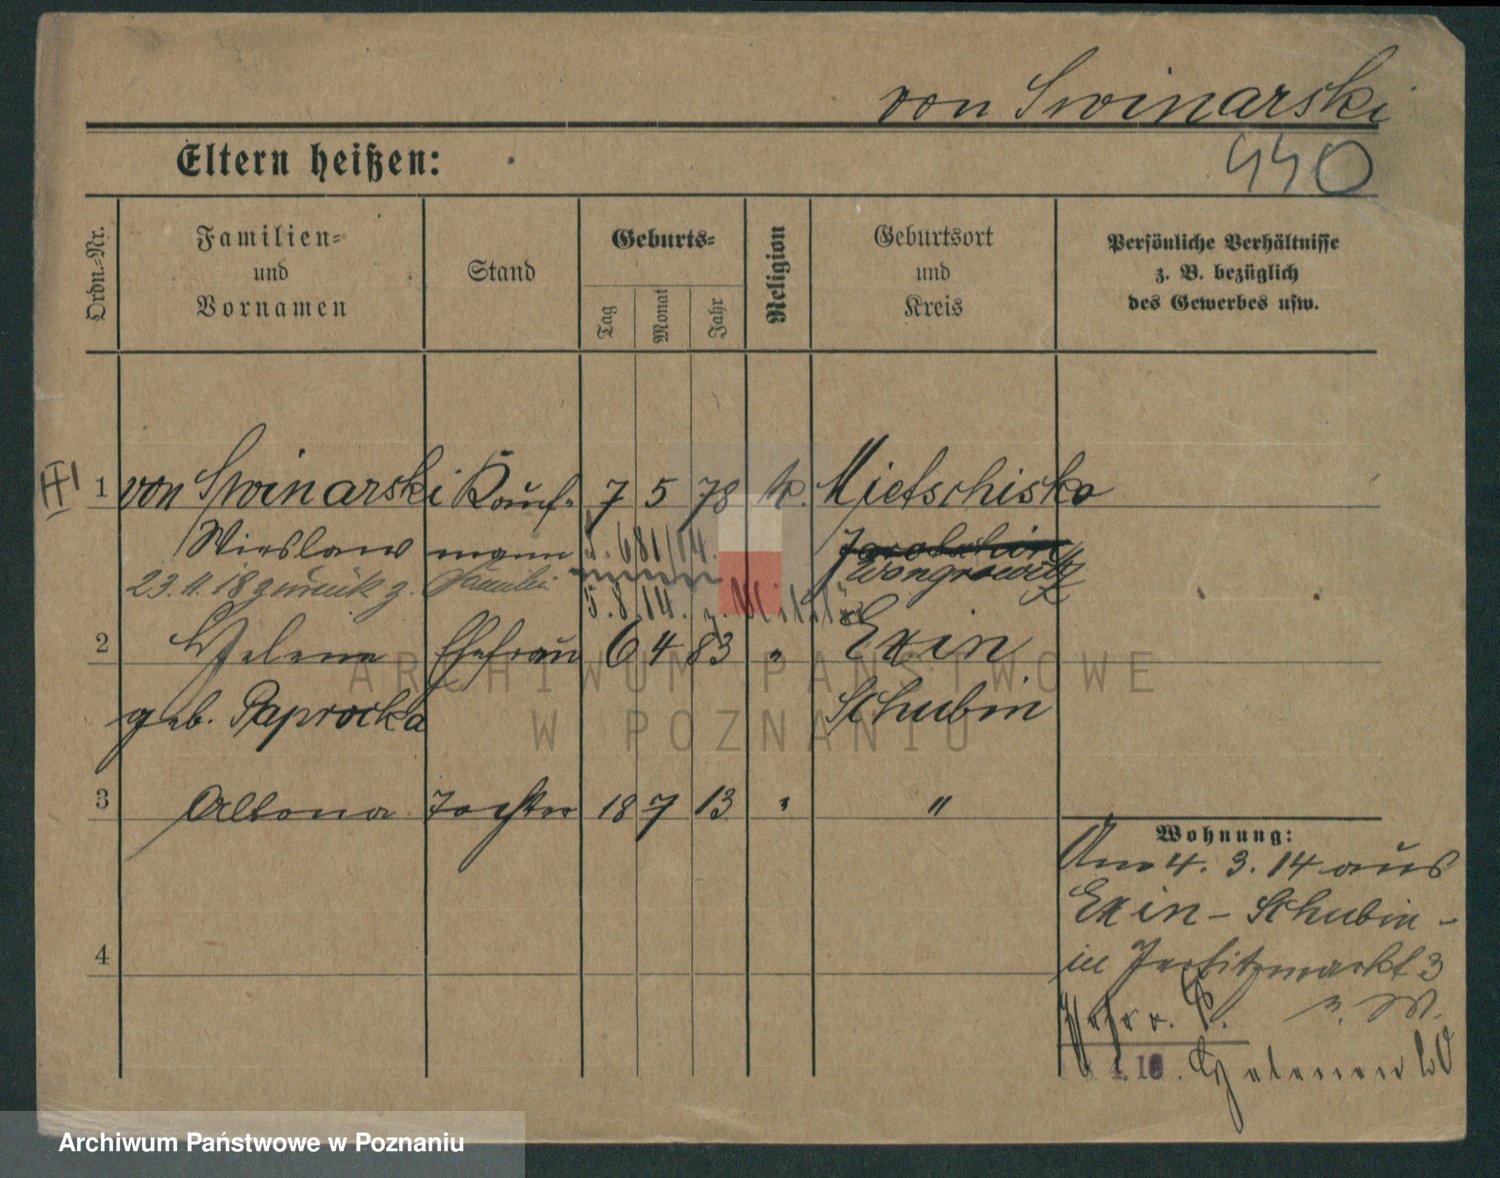 von Swinarski
Eltern heißen:
440
Ordn.-Nr.
Familien-
und
Vornamen
Stand
Geburts-
Tag
Monat
Jahr
Religion
Geburtsort
und
Kreis
Persönliche Verhältnisse
z. B. bezüglich
des Gewerbes usw.
1 von Swinarski Kauf- 7 5 78 k. Mietschisko
Wieslaw mann J. 681/14. Jarotschin
23.11.18 zurück z. Familie Wongrowitz
5.8.14. z. Militär
2 Helene Ehefrau 6 4 83 " Exin
geb. Paprocka Schubin
3 Aldona Tochter 18 7 13 " "
Wohnung:
Am 4. 3. 14 aus
Exin - Schubin -
in Jersitzmarkt 3
z. W.
4
4.16.
ARCHIWUM PAŃSTWOWE
W POZNANIU
Archiwum Państwowe w Poznaniu